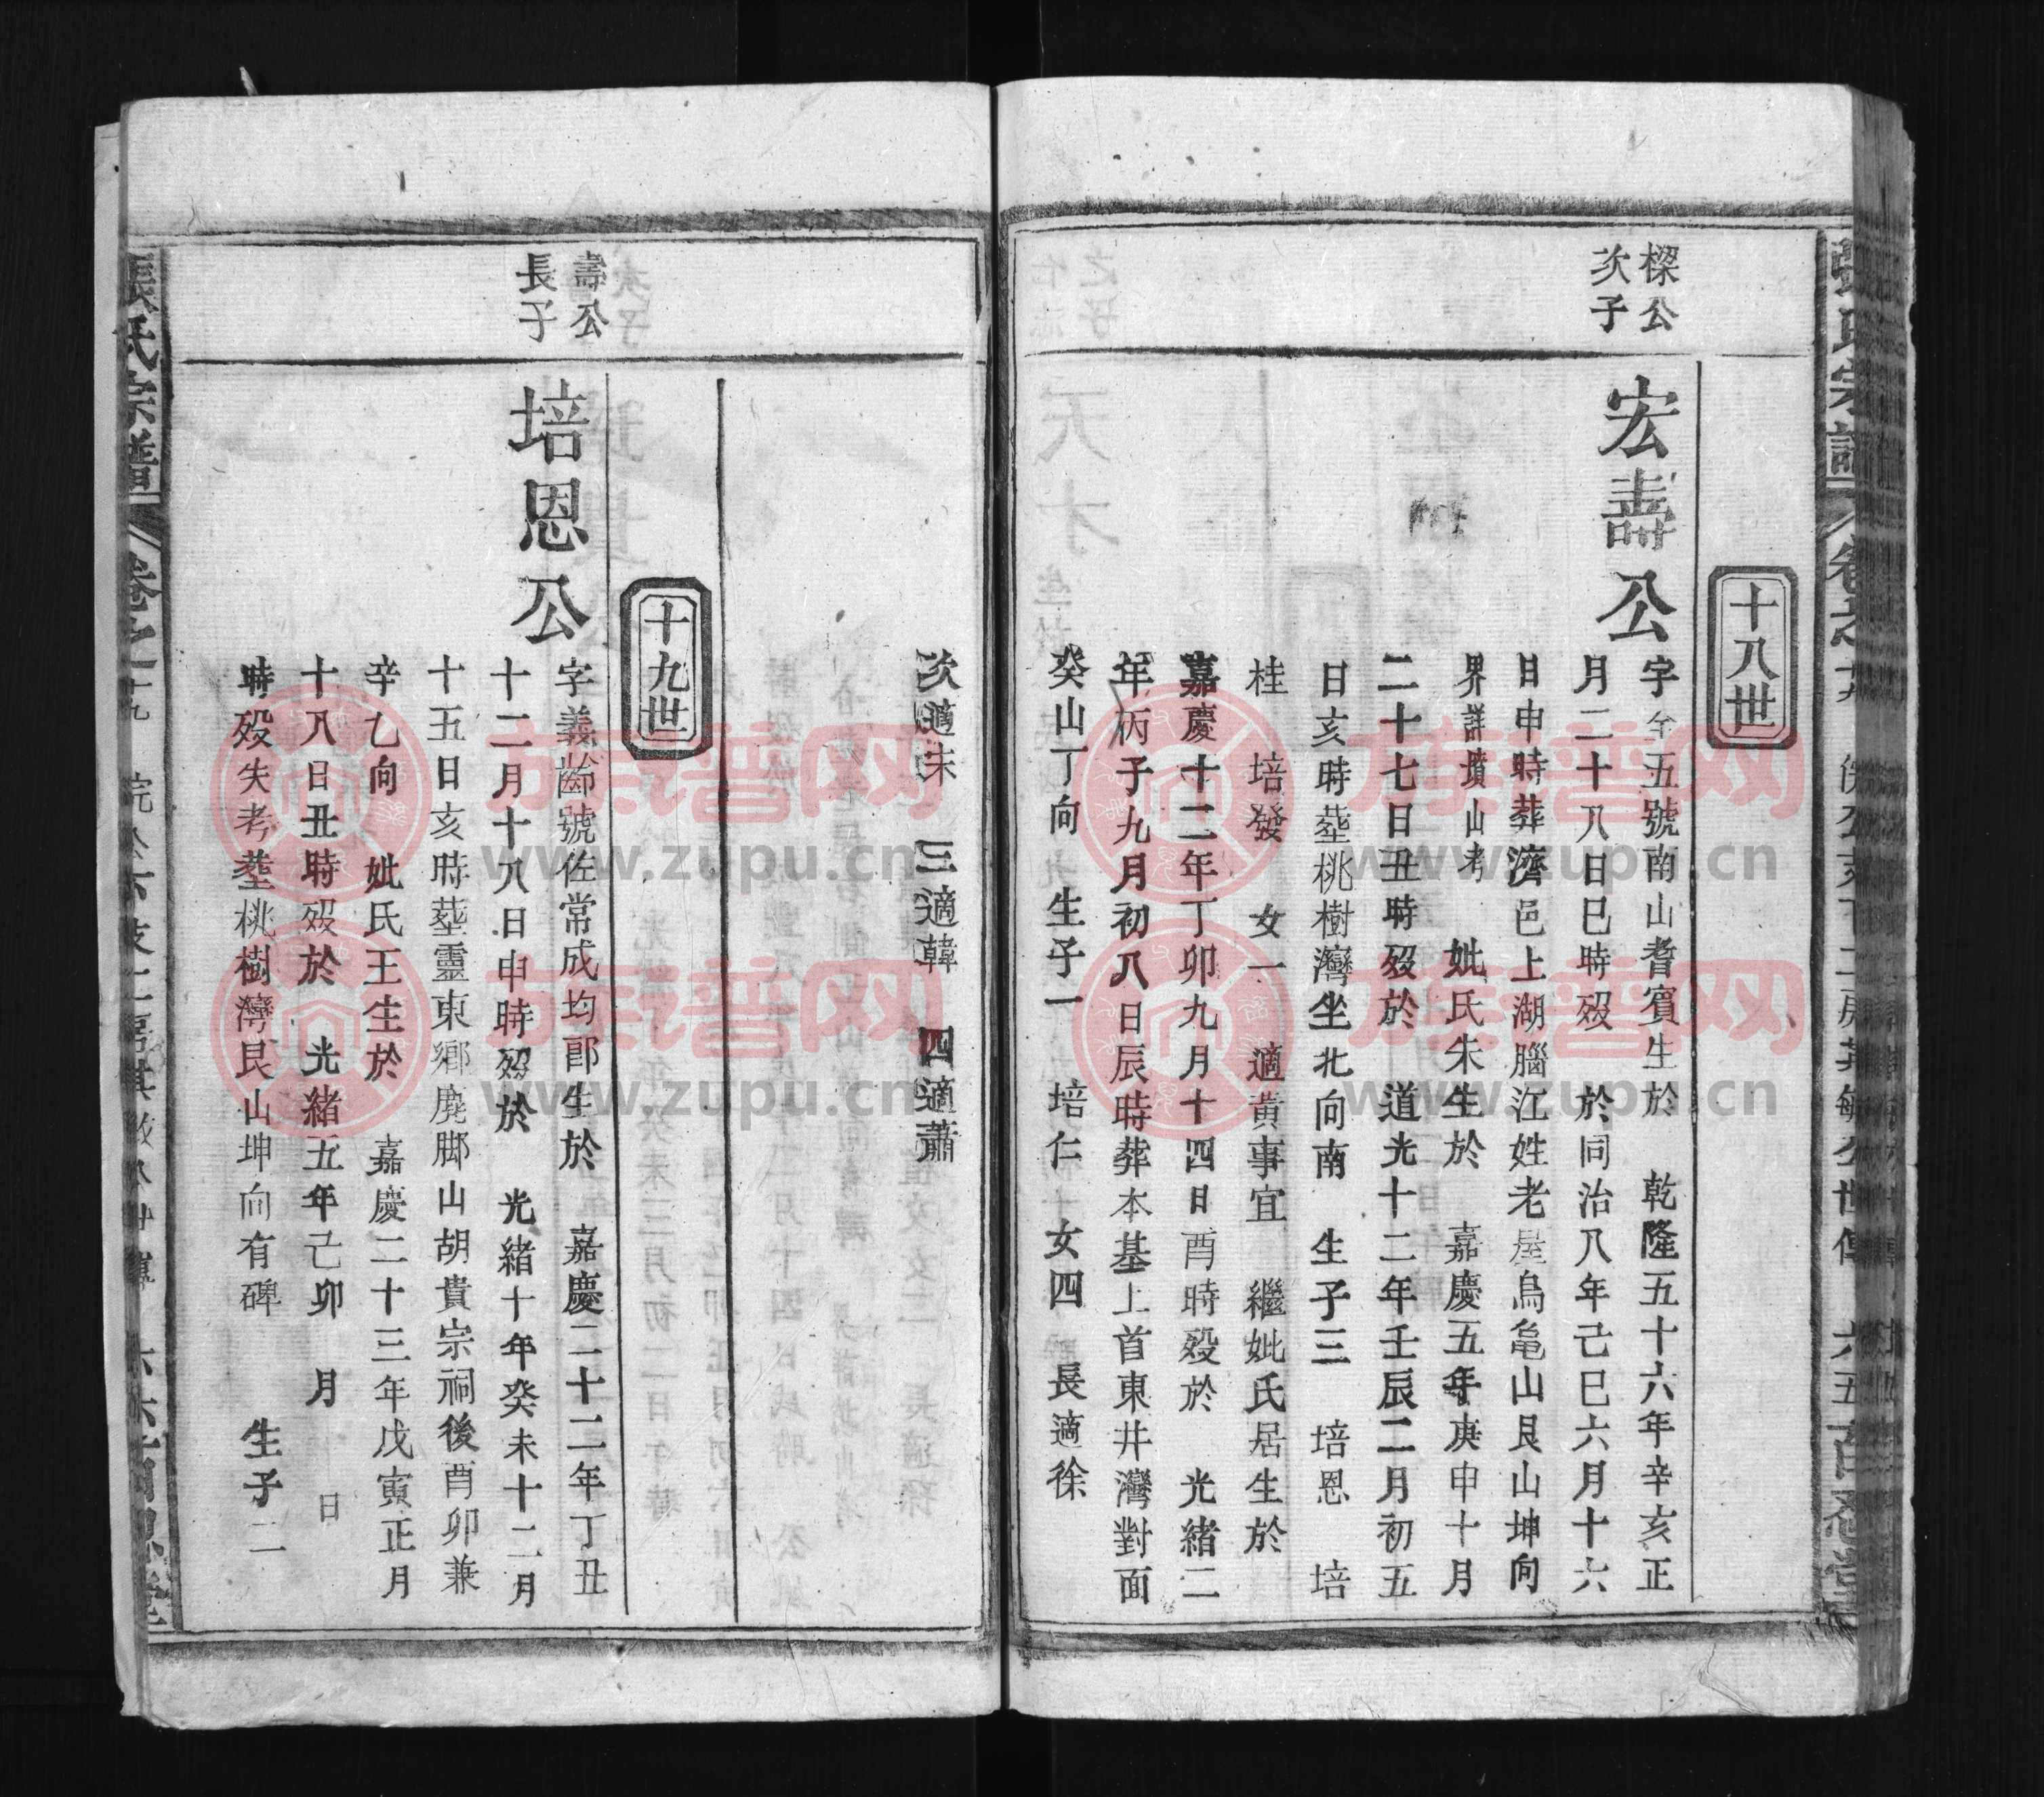 十八世
樑公
次子
宏壽公
字年五號南山耆賓生於 乾隆五十六年辛亥正
月二十八日巳時歿 於同治八年己巳六月十六
日申時葬濟邑上湖腦江姓老屋烏龜山艮山坤向
界詳墳山考 妣氏朱生於 嘉慶五年庚申十月
二十七日丑時歿於 道光十二年壬辰二月初五
日亥時塟桃樹灣坐北向南 生子三 培恩 培
桂 培發 女一 適黄事宜 繼妣氏居生於
嘉慶十二年丁卯九月十四日酉時歿於 光緒二
年柄子九月初八日辰時葬本基上首東井灣對面
癸山丁向 生子一 培仁 女四 長適徐
次適朱 三適韓 四適蕭
十九世
壽公
長子
培恩公
字義齡號佐常成均郎生於 嘉慶二十二年丁丑
十二月十八日申時歿於 光緒十年癸未十二月
十五日亥時塟靈東鄉鹿脚山胡貴宗祠後酉卯兼
辛乙向 妣氏王生於 嘉慶二十三年戊寅正月
十八日丑時歿於 光緒五年己卯 月 日
時歿失考塟桃樹灣艮山坤向有碑 生子二
張氏宗譜
族谱网
www.zupu.cn
族谱网
www.zupu.cn
族谱网
www.zupu.cn
族谱网
www.zupu.cn